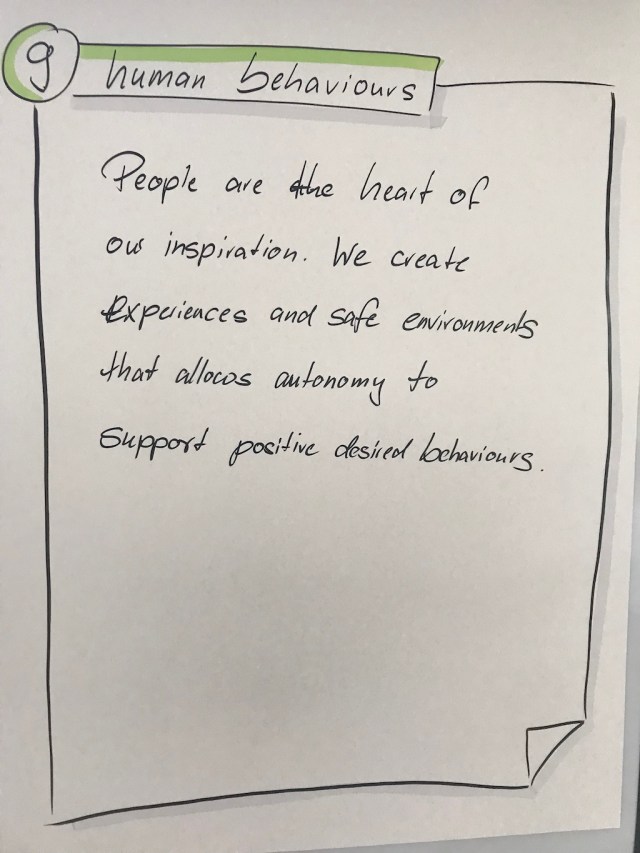 9 human behaviours
People are the heart of
our inspiration. We create
experiences and safe environments
that allows autonomy to
support positive desired behaviours.